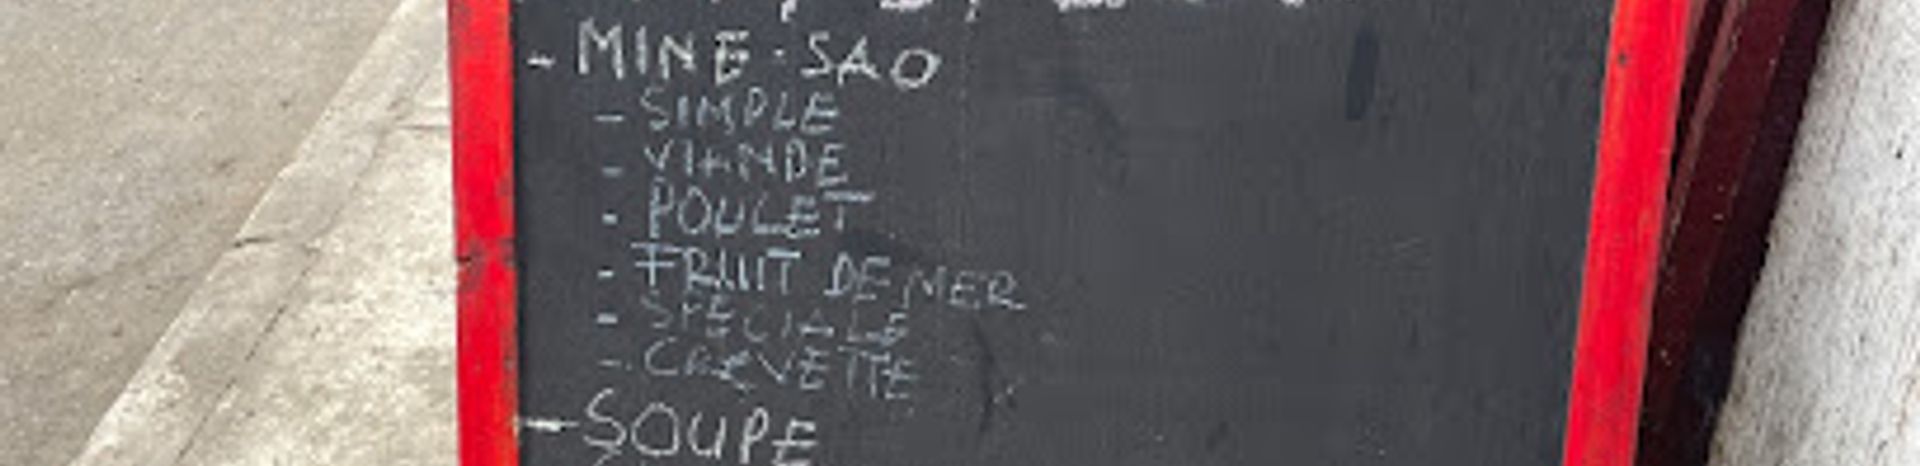 - MINE - SAO
- SIMPLE
- VIANDE
- POULET
- FRUIT DE MER
- SPECIALE
- CREVETTE
- SOUPE